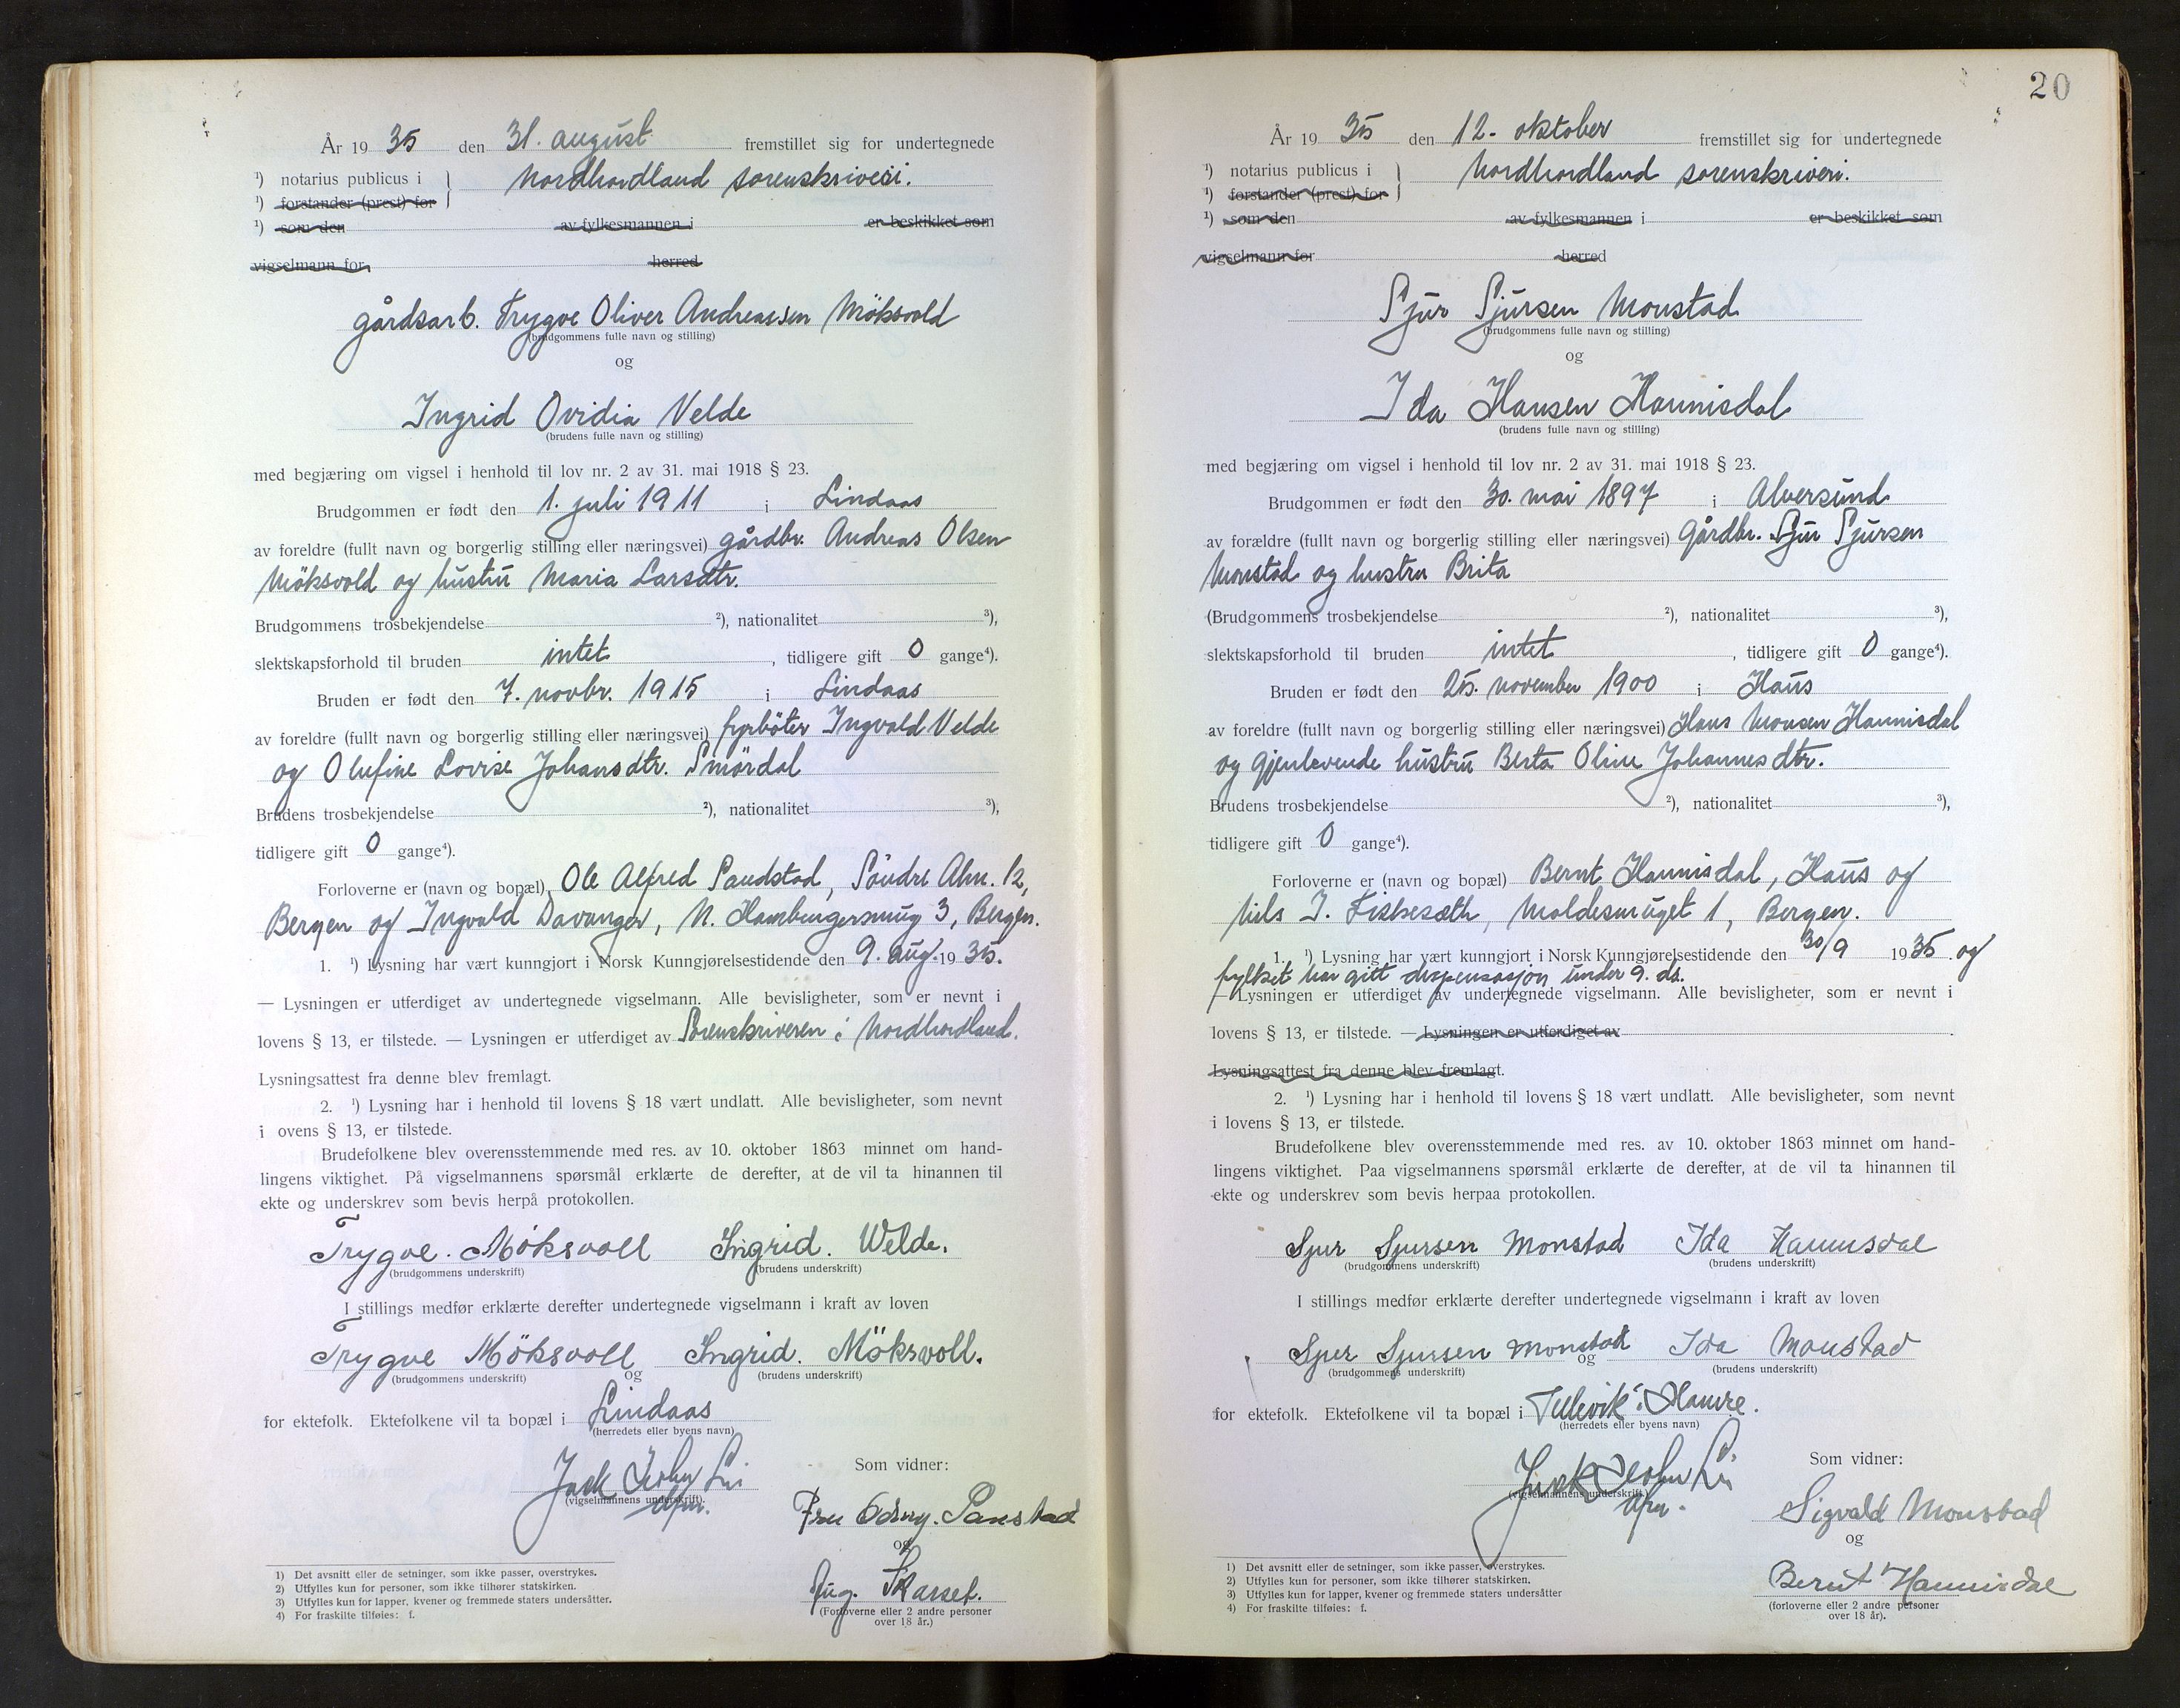 År 19 35 den 31. august fremstillet sig for undertegnede
¹) notarius publicus i } Nordhordland sorenskriveri.
¹) forstander (prest) for
¹) som den av fylkesmannen i er beskikket som
vigselmann for herred
gårdsarb. Trygve Oliver Andreassen Möksvold
(brudgommens fulle navn og stilling)
og
Ingrid Ovidia Velde
(brudens fulle navn og stilling)
med begjæring om vigsel i henhold til lov nr. 2 av 31. mai 1918 § 23.
Brudgommen er født den 1. juli 1911 i Lindaas
av foreldre (fullt navn og borgerlig stilling eller næringsvei) gårdbr. Andreas Olsen
Möksvold og hustru Maria Larsdtr.
Brudgommens trosbekjendelse ²), nationalitet ³),
slektskapsforhold til bruden intet, tidligere gift 0 gange⁴).
Bruden er født den 7. novbr. 1915 i Lindaas
av foreldre (fullt navn og borgerlig stilling eller næringsvei) fyrböter Ingvald Velde
og Olufine Lovise Johansdtr. Smördal
Brudens trosbekjendelse ²), nationalitet ³),
tidligere gift 0 gange⁴).
Forloverne er (navn og bopæl) Ole Alfred Sandstad, Söndre Alm. 12,
Bergen og Ingvald Davanger, N. Hamburgersmug 3, Bergen.
1. ¹) Lysning har vært kunngjort i Norsk Kunngjørelsestidende den 9. aug. 19 35.
— Lysningen er utferdiget av undertegnede vigselmann. Alle bevisligheter, som er nevnt i
lovens § 13, er tilstede. — Lysningen er utferdiget av Sorenskriveren i Nordhordland.
Lysningsattest fra denne blev fremlagt.
2. ¹) Lysning har i henhold til lovens § 18 vært undlatt. Alle bevisligheter, som nevnt
i ovens § 13, er tilstede.
Brudefolkene blev overensstemmende med res. av 10. oktober 1863 minnet om hand-
lingens viktighet. På vigselmannens spørsmål erklærte de derefter, at de vil ta hinannen til
ekte og underskrev som bevis herpå protokollen.
Trygve. Möksvoll Ingrid. Welde.
(brudgommens underskrift) (brudens underskrift)
I stillings medfør erklærte derefter undertegnede vigselmann i kraft av loven
Trygve Möksvoll Ingrid. Möksvoll.
(brudgommens underskrift) og (brudens underskrift)
for ektefolk. Ektefolkene vil ta bopæl i Lindaas
(herredets eller byens navn)
Jack John Li
(vigselmannens underskrift).
Som vidner:
Fru Odny. Sanstad
og
Aug. Skarset.
(Forloverne eller 2 andre personer
over 18 år.)
1) Det avsnitt eller de setninger, som ikke passer, overstrykes.
2) Utfylles kun for personer, som ikke tilhører statskirken.
3) Utfylles kun for lapper, kvener og fremmede staters undersåtter.
4) For fraskilte tilføies: f.
20
År 19 35 den 12. oktober fremstillet sig for undertegnede
¹) notarius publicus i } Nordhordland sorenskriveri.
¹) forstander (prest) for
¹) som den av fylkesmannen i er beskikket som
vigselmann for herred
Sjur Sjursen Monstad
(brudgommens fulle navn og stilling)
og
Ida Hansen Hannisdal
(brudens fulle navn og stilling)
med begjæring om vigsel i henhold til lov nr. 2 av 31. mai 1918 § 23.
Brudgommen er født den 30. mai 1897 i Alversund
av forældre (fullt navn og borgerlig stilling eller næringsvei) gårdbr. Sjur Sjursen
Monstad og hustru Brita
(Brudgommens trosbekjendelse ²), nationalitet ³),
slektskapsforhold til bruden intet, tidligere gift 0 gange⁴).
Bruden er født den 25. november 1900 i Haus
av foreldre (fullt navn og borgerlig stilling eller næringsvei) Hans Monsen Hannisdal
og gjenlevende hustru Berta Oline Johannesdtr.
Brudens trosbekjendelse ²), nationalitet ³),
tidligere gift 0 gange⁴).
Forloverne er (navn og bopæl) Bernt Hannisdal, Haus og
Nils J. Fiskesæth, Moldesmuget 1, Bergen.
1. ¹) Lysning har vært kunngjort i Norsk Kunngjørelsestidende den 30/9 19 35 og
fylket har gitt dispensasjon under 9. ds.
— Lysningen er utferdiget av undertegnede vigselmann. Alle bevisligheter, som er nevnt i
lovens § 13, er tilstede. — Lysningen er utferdiget av
Lysningsattest fra denne blev fremlagt.
2. ¹) Lysning har i henhold til lovens § 18 vært undlatt. Alle bevisligheter, som nevnt
i lovens § 13, er tilstede.
Brudefolkene blev overensstemmende med res. av 10. oktober 1863 minnet om hand-
lingens viktighet. Paa vigselmannens spørsmål erklærte de derefter, at de vil ta hinannen til
ekte og underskrev som bevis herpaa protokollen.
Sjur Sjursen Monstad Ida Hannisdal
(brudgommens underskrift) (brudens underskrift)
I stillings medfør erklærte derefter undertegnede vigselmann i kraft av loven
Sjur Sjursen Monstad og Ida Monstad
(brudgommens underskrift) (brudens underskrift)
for ektefolk. Ektefolkene vil ta bopæl i Tellevik i Hamre.
(herredets eller byens navn)
Jack John Li
(vigselmannens underskrift.)
Som vidner:
Sigvald Monstad
og
Bernt Hannisdal
(forloverne eller 2 andre personer
over 18 år).
1) Det avsnitt eller de setninger, som ikke passer, overstrykes.
2) Utfylles kun for personer, som ikke tilhører statskirken.
3) Utfylles kun for lapper, kvener og fremmede staters undersåtter
4) For fraskilte tilføies: f.